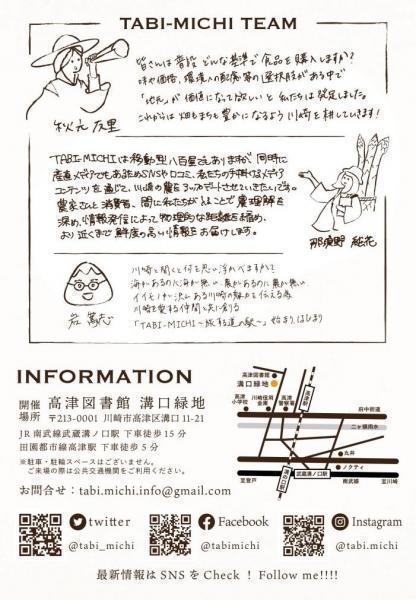 TABI-MICHI TEAM
皆さんは普段どんな基準で食品を購入しますか?
味や価格、環境への配慮等の選択肢がある中で
「地元」が価値になって欲しいと私たちは発足しました。
これからは畑もまちも豊かになるよう川崎を耕していきます!
秋元 友里
TABI-MICHIは移動型八百屋でもありますが、同時に
産直メディアでもあるためSNSや口コミ、私たちの手掛けるメディア
コンテンツを通じて、川崎の農を
農家さんと消費者、間に私たちが
深め、情報発信によって物理的な距離を縮め、
より近くまで鮮度の高い情報をお届けします。
那須野 純花
川崎と聞くと何を思い浮かべますか?
海があるのに海が無い、農があるのに農が無い
川崎を愛する仲間と共に創る
「TABI-MICHI〜旅する道の駅〜」始まりはじまり
岩 篤志
INFORMATION
開催場所 高津図書館 溝口緑地
〒213-0001 川崎市高津区溝口 11-21
JR 南武線武蔵溝ノ口駅 下車徒歩 15 分
田園都市線高津駅 下車徒歩 5 分
※駐車・駐輪スペースはございません。
ご来場の際は公共交通機関をご利用ください。
お問合せ:tabi.michi.info@gmail.com
高津図書館
溝口緑地
高津小学校
川崎信用金庫
高津警察署
高津駅
府中街道
二ヶ領用水
丸井
ノクティ
溝の口駅
武蔵溝ノ口駅
至登戸
南武線
至川崎
twitter
@tabi_michi
Facebook
@tabimichi
Instagram
@tabi.michi
最新情報は SNS を Check ! Follow me!!!!